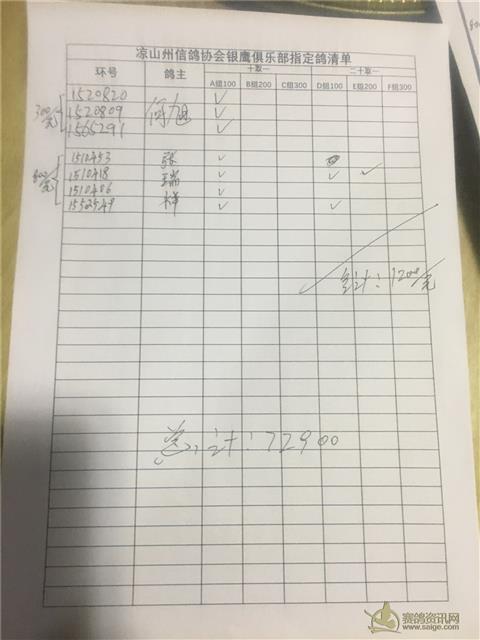 凉山州信鸽协会银鹰俱乐部指定鸽清单
环号 鸽主 十取一 二十取一
A组100 B组200 C组300 D组100 E组200 F组300
1520820 ✓
300元 1520809 何旭 ✓
1565291 ✓
1510453 张 ✓
1510418 瑞 ✓ ✓ ✓
1510406 祥 ✓
1552549 ✓ ✓
合计:1200元
总计:72900
赛鸽资讯网
www.saige.com